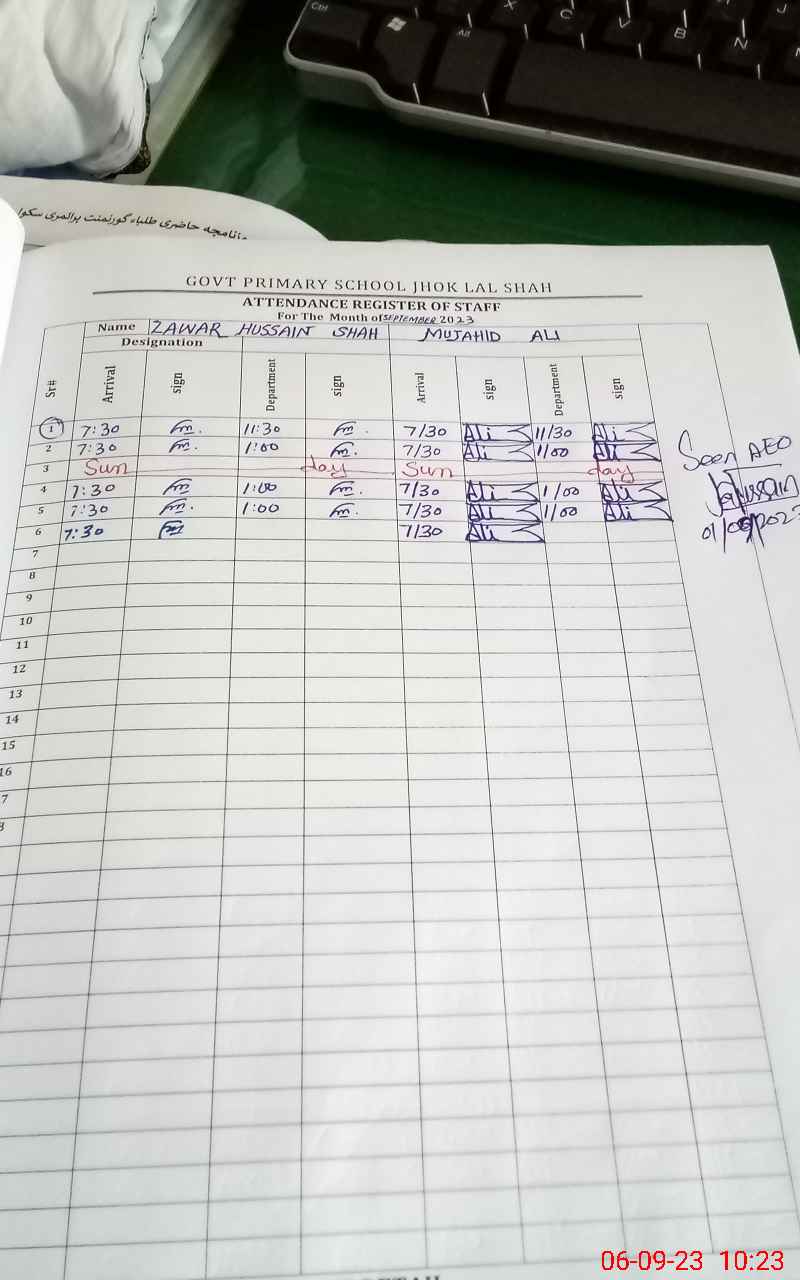 Ctrl
Alt
X C V B N
نامچہ حاضری طلباء گورنمنٹ پرائمری سکول
GOVT PRIMARY SCHOOL JHOK LAL SHAH
ATTENDANCE REGISTER OF STAFF
For The Month of SEPTEMBER 2023
Name ZAWAR HUSSAIN SHAH MUJAHID ALI
Designation
Sr# Arrival sign Department sign Arrival sign Department sign
1 7:30 11:30 7/30 Ali 11/30 Ali
2 7:30 1:00 7/30 Ali 1/00 Ali
3 Sun day Sun day
4 7:30 1:00 7/30 Ali 1/00 Ali
5 7:30 1:00 7/30 Ali 1/00 Ali
6 7:30 7/30 Ali
Seen AEO
7
8
9
10
11
12
13
14
15
16
7
06-09-23 10:23